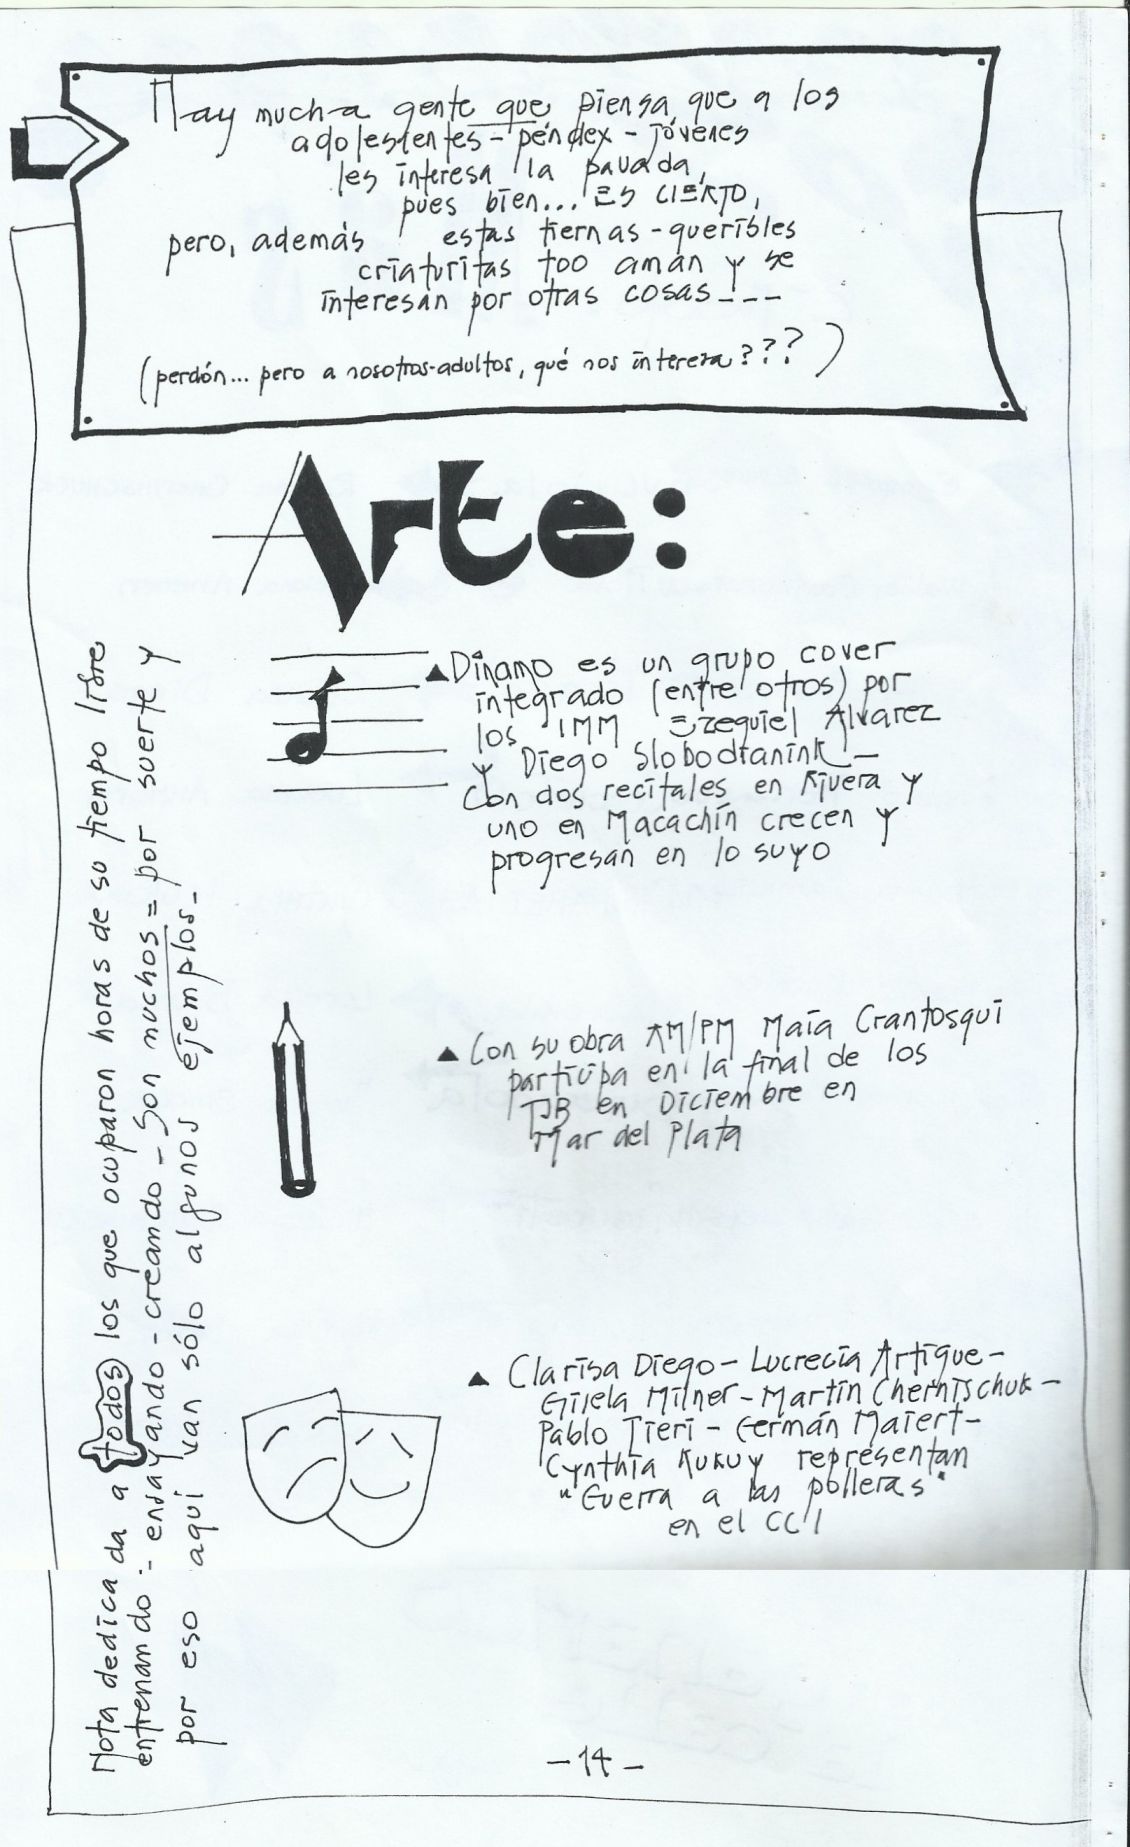 Hay mucha gente que piensa que a los
adolescentes - péndex - jóvenes
les interesa la pavada,
pues bien... ES CIERTO,
pero, además estas tiernas - queribles
criaturitas too aman y se
interesan por otras cosas - - -
(perdón... pero a nosotros-adultos, qué nos interesa???)
Arte:
▲ Dínamo es un grupo cover
integrado (entre otros) por
los IMM Ezequiel Alvarez
y Diego Slobodianink -
Con dos recitales en Rivera y
uno en Macachín crecen y
progresan en lo suyo
▲ Con su obra AM/PM Maia Crantosqui
participa en la final de los
TJB en Diciembre en
Mar del Plata
▲ Clarisa Diego - Lucrecia Artigue -
Gisela Milner - Martín Chernischuk -
Pablo Tieri - Germán Maiert -
Cynthia Kukuy representan
"Guerra a las polleras"
en el CCI
Nota dedicada a todos los que ocuparon horas de su tiempo libre
entrenando - ensayando - creando - Son muchos = por suerte y
por eso aquí van sólo algunos ejemplos -
- 14 -